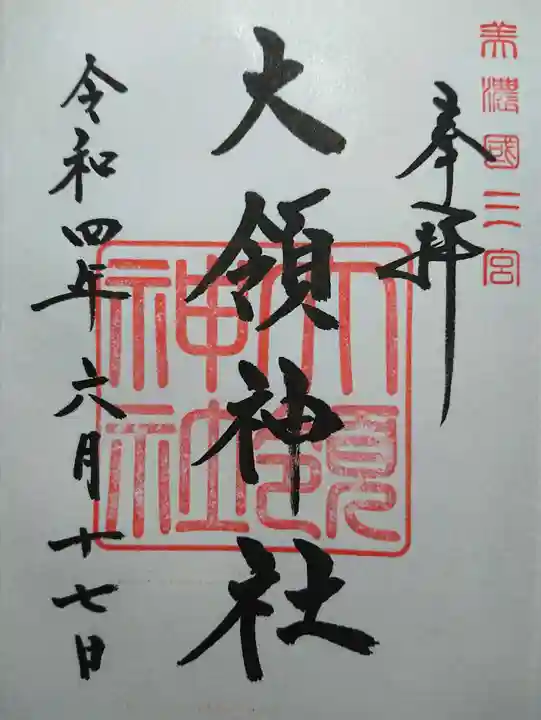 美濃國三宮
奉拜
大領神社
大領神社
令和四年六月十七日